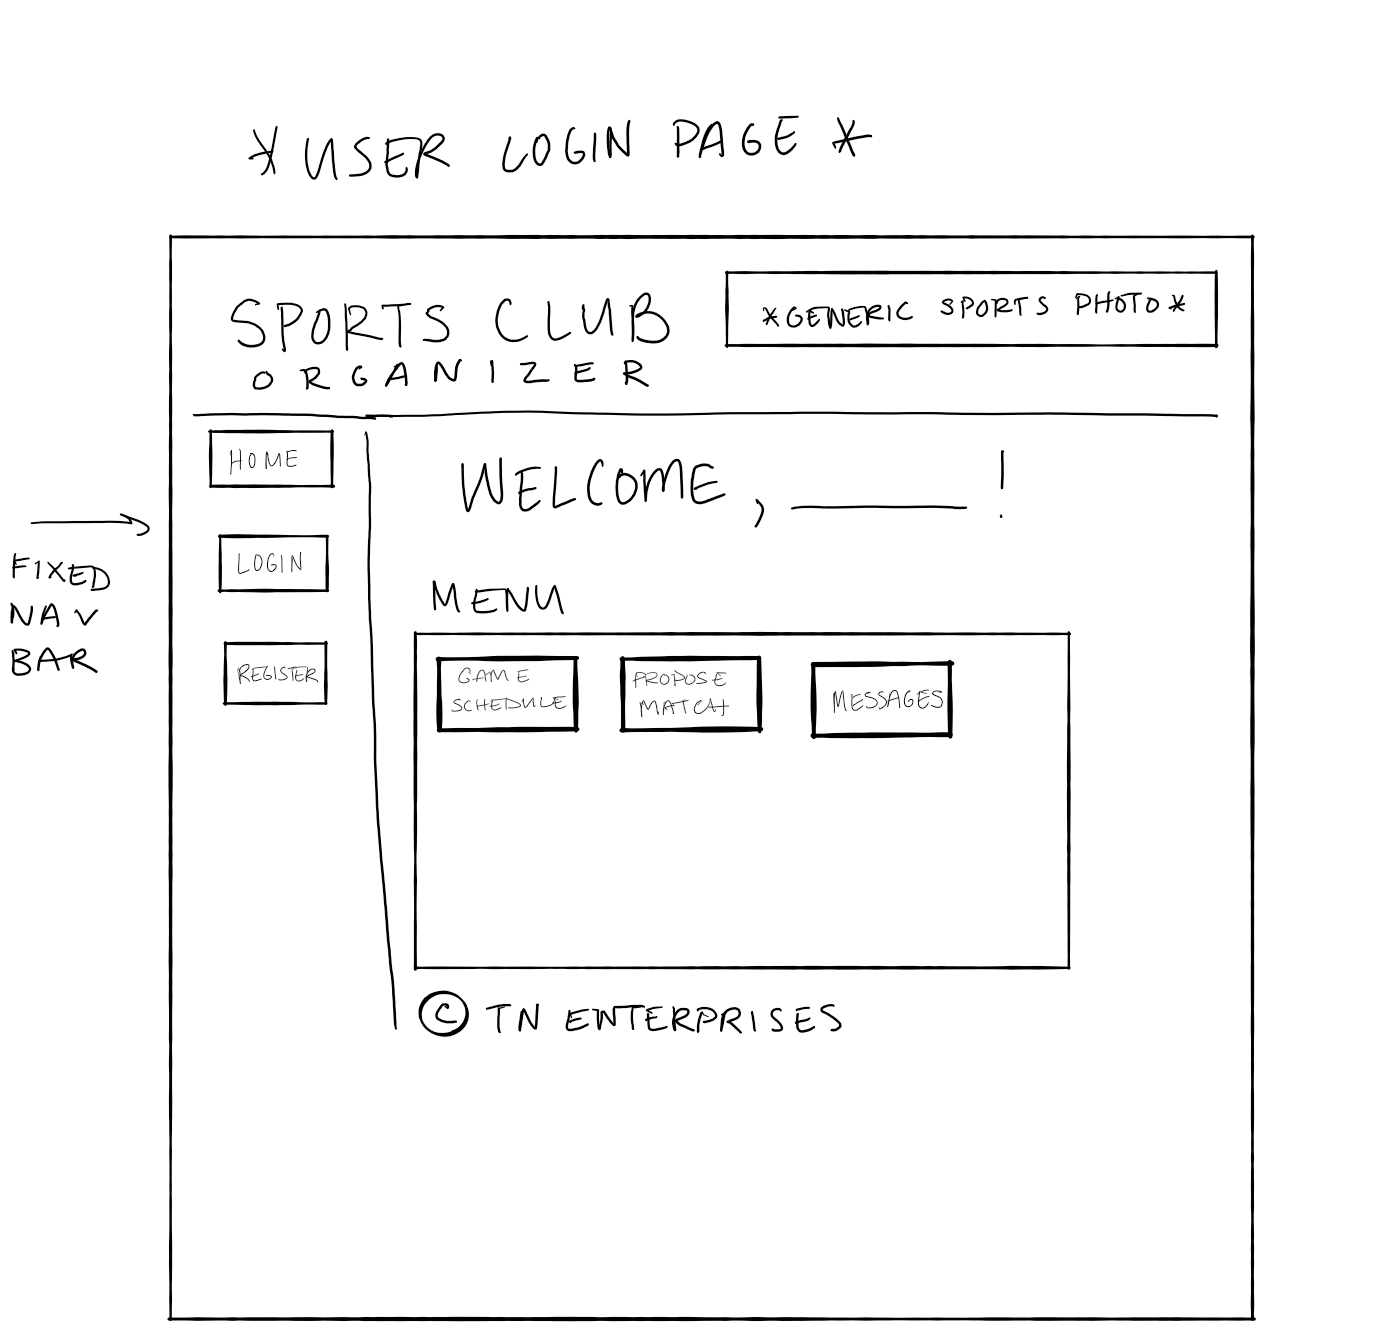 *USER LOGIN PAGE*
SPORTS CLUB
ORGANIZER
*GENERIC SPORTS PHOTO*
FIXED
NAV
BAR
HOME
LOGIN
REGISTER
WELCOME, ______!
MENU
GAME
SCHEDULE
PROPOSE
MATCH
MESSAGES
© TN ENTERPRISES